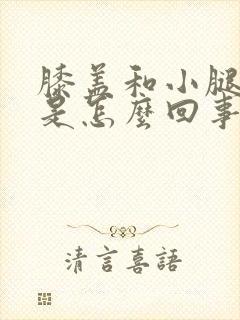 膝盖和小腿
是怎麼回事
清言喜語